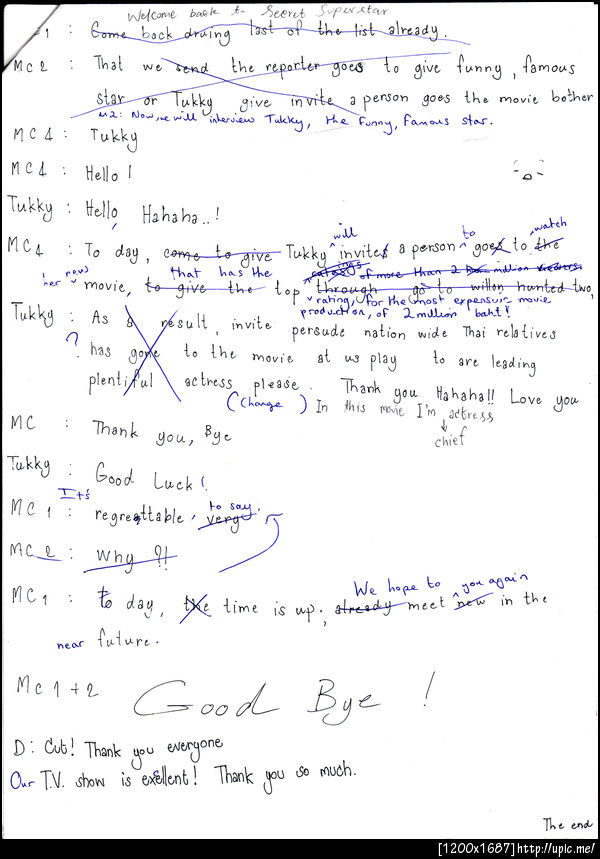 Welcome back to Secret Superstar
1 : Come back druing last of the list already.
MC 2 : That we send the reporter goes to give funny, famous
star or Tukky give invite a person goes the movie bother
M2: Now, we will interview Tukky, the funny, famous star.
MC 4 : Tukky
MC 4 : Hello !
Tukky : Hello Hahaha..!
will to watch
MC 4 : To day, come to give Tukky invites a person goes to the
her new that has the ings of more than 2 million
movie, to give the top through go to willon hunted two,
rating, for the most expensive movie
production, of 2 million baht!
Tukky : As a result, invite persude nation wide Thai relatives
? has gone to the movie at us play to are leading
plentiful actress please. Thank you Hahaha!! Love you
(Change) In this movie I'm actress
chief
MC : Thank you, Bye
Tukky : Good Luck !
It's to say.
MC 1 : regrettable, very
MC 2 : Why ?!
We hope to you again
MC 1 : to day, the time is up, already meet new in the
near future.
MC 1 + 2 Good Bye !
D : Cut! Thank you everyone
Our T.V. show is exellent! Thank you so much.
The end
[1200x1687]http://upic.me/